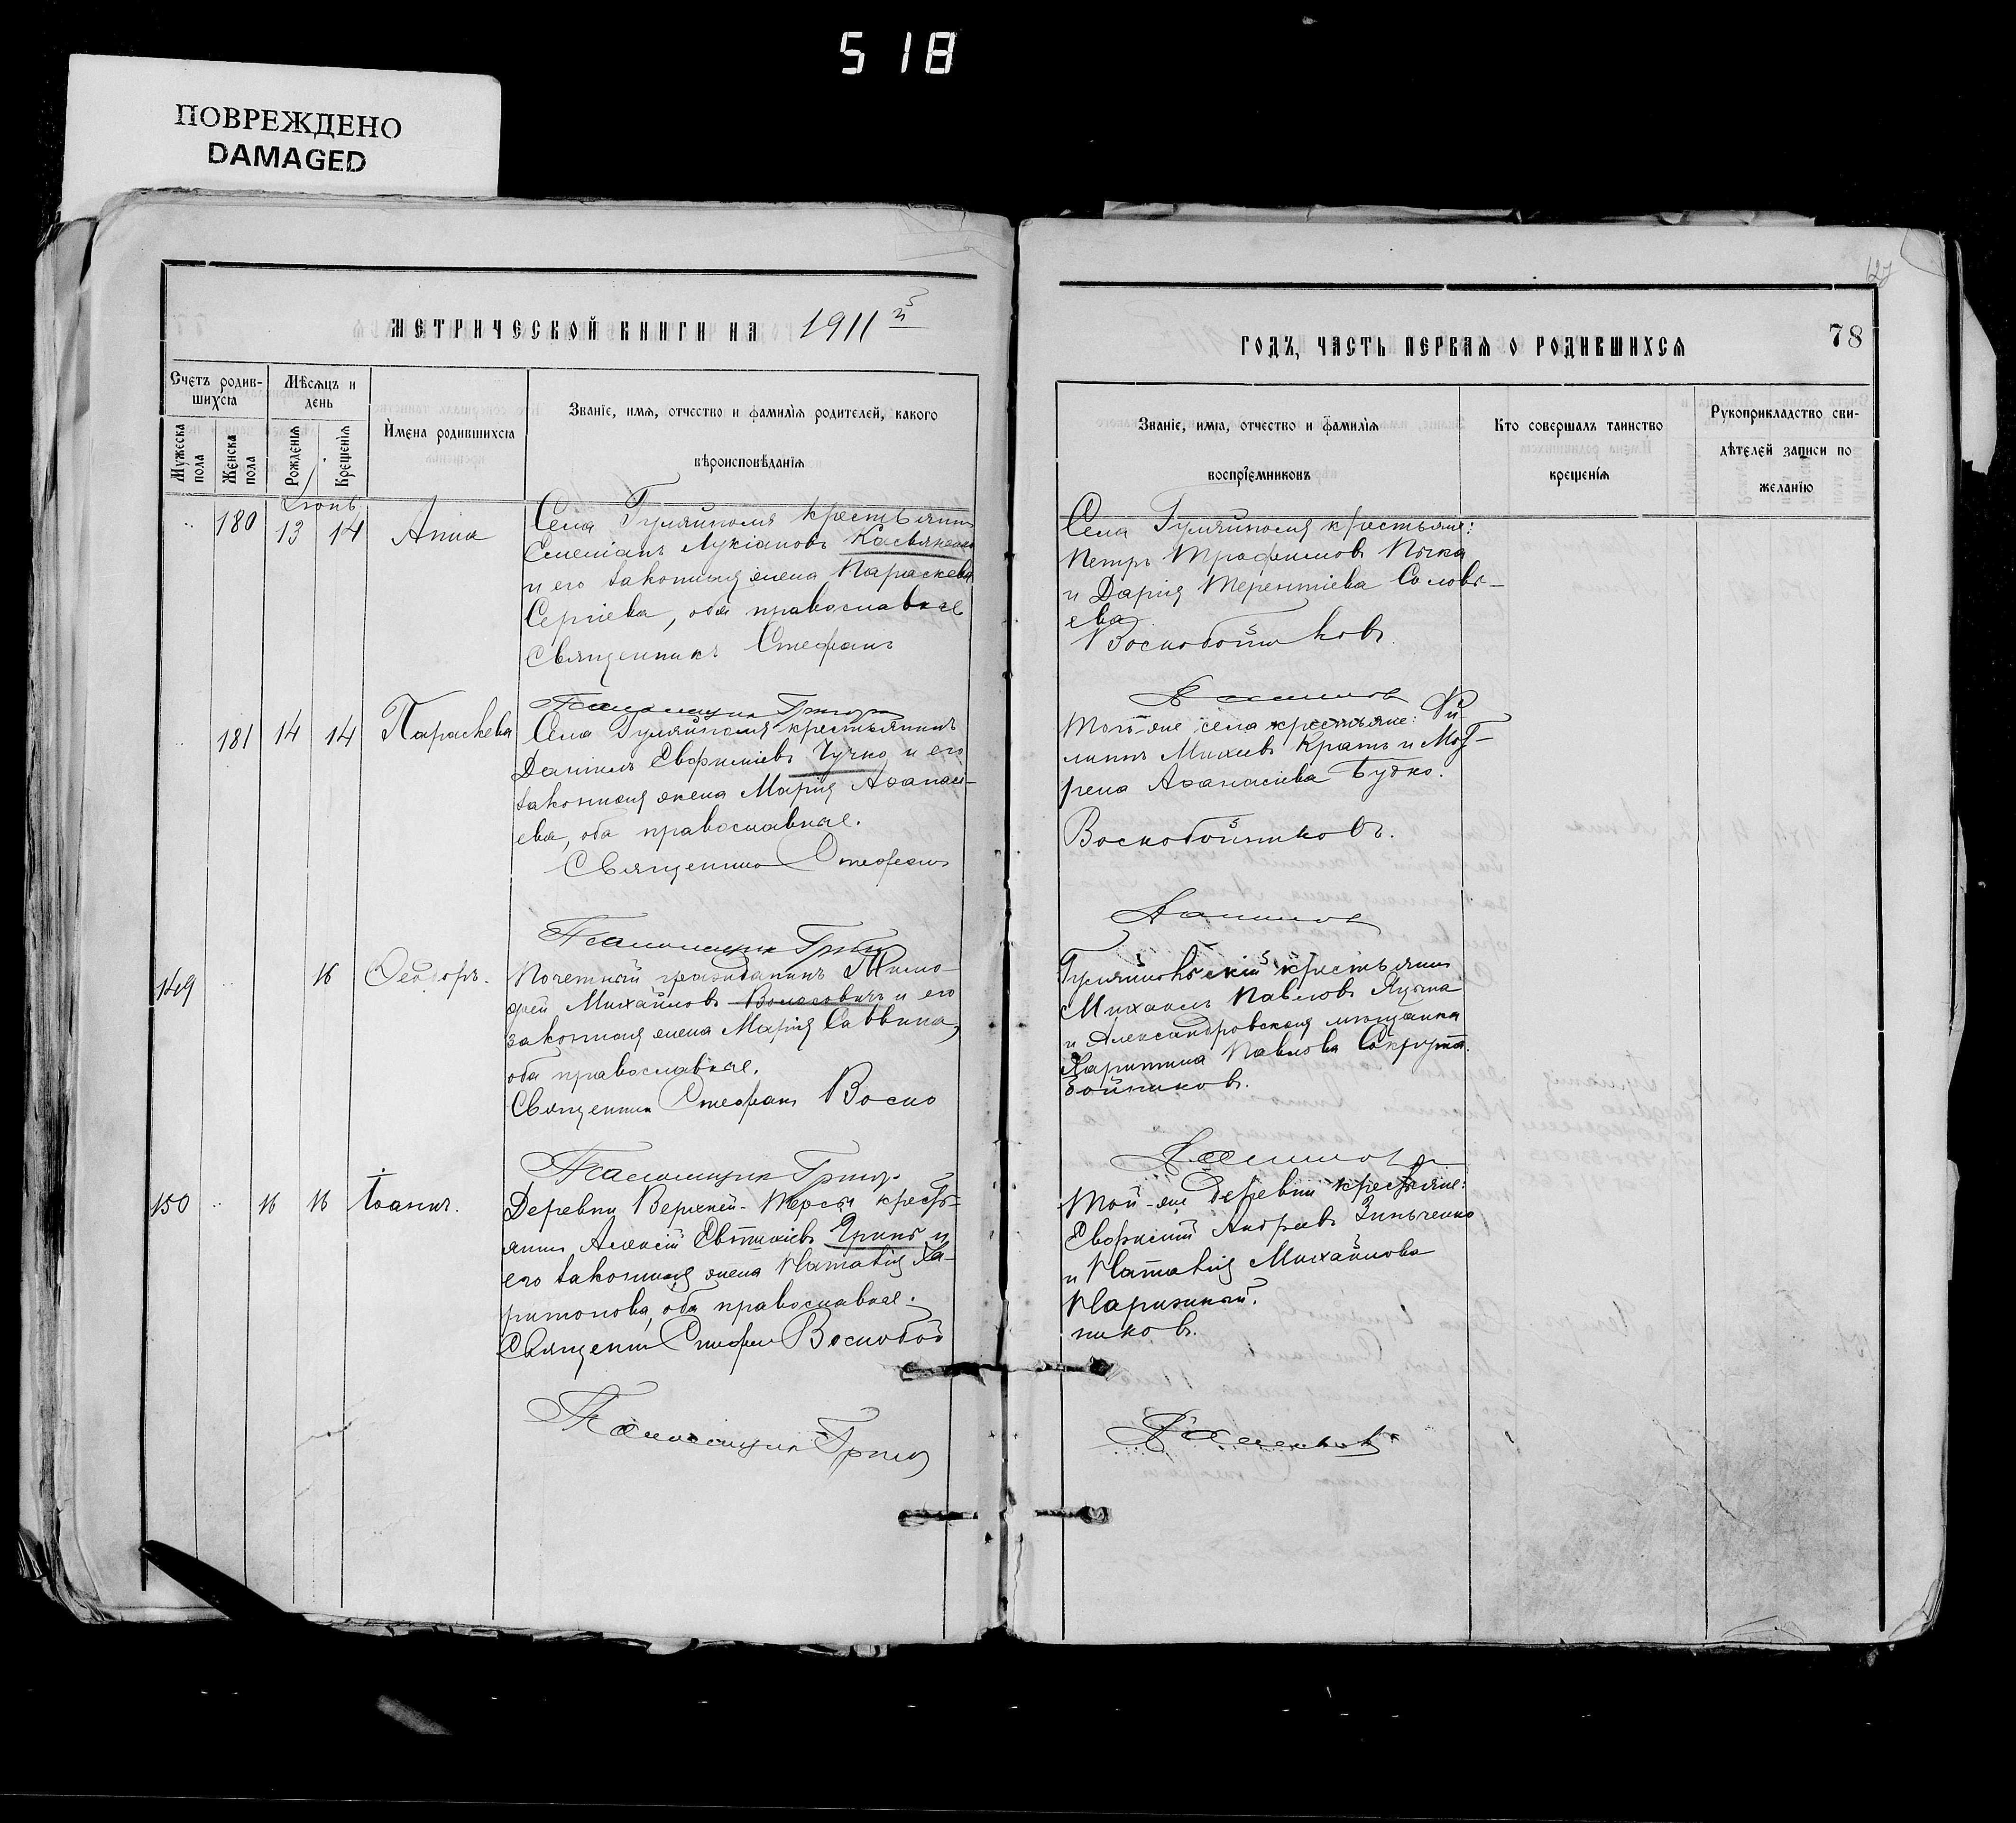 518
ПОВРЕЖДЕНО
DAMAGED
127
МЕТРИЧЕСКОЙ КНИГИ НА 1911й
ГОДЪ, ЧАСТЬ ПЕРВАЯ О РОДИВШИХСЯ
78
Счетъ родив-
шихся
Мужеска
пола
Женска
пола
Мѣсяцъ и
день
Рожденія
Крещенія
Имена родившихся
Званіе, имя, отчество и фамилія родителей, какого
вѣроисповѣданія
Званіе, имя, отчество и фамилія
воспріемниковъ
Кто совершалъ таинство
крещенія
Рукоприкладство сви-
дѣтелей записи по
желанію
Іюнь
180 13 14 Анна
Села Гуляйполя крестьянинъ
Лукіановъ Касьяненко
и его законная жена Параскева
Сергіева, оба православные
Священникъ Стефанъ
Села Гуляйполя крестьяне:
Петръ Трофимовъ
и Дарія Терентіева Соловь-
ева
Воскобойниковъ
181 14 14 Параскева
Села Гуляйполя крестьянинъ
Даніилъ Евфиміевъ Чучко и его
законная жена Марія Афанасі-
ева, оба православные.
Священникъ Стефанъ
Того-же села крестьяне: Фи-
липпъ Михеевъ Кратъ и Мот-
рена Афанасіева Будко.
Воскобойниковъ.
149 16 Ѳеодоръ.
Почетный гражданинъ Тимо-
фей Михайловъ Волосовичъ и его
законная жена Марія Саввина,
оба православные.
Священникъ Стефанъ Воско
Гуляйпольскій крестьянинъ
Михаилъ Павловъ
и Александровская мѣщанка
Харитина Павлова
бойниковъ.
150 16 16 Іоаннъ.
Деревни Верхней-Терсы кресть-
янинъ Алексій Евѳиміевъ и
его законная жена Наталія Ха-
ритонова, оба православные.
Священникъ Стефанъ Воскобой
Той-же деревни крестьяне:
Евфимій Андреевъ Зинченко
и Наталія Михайлова
никовъ.